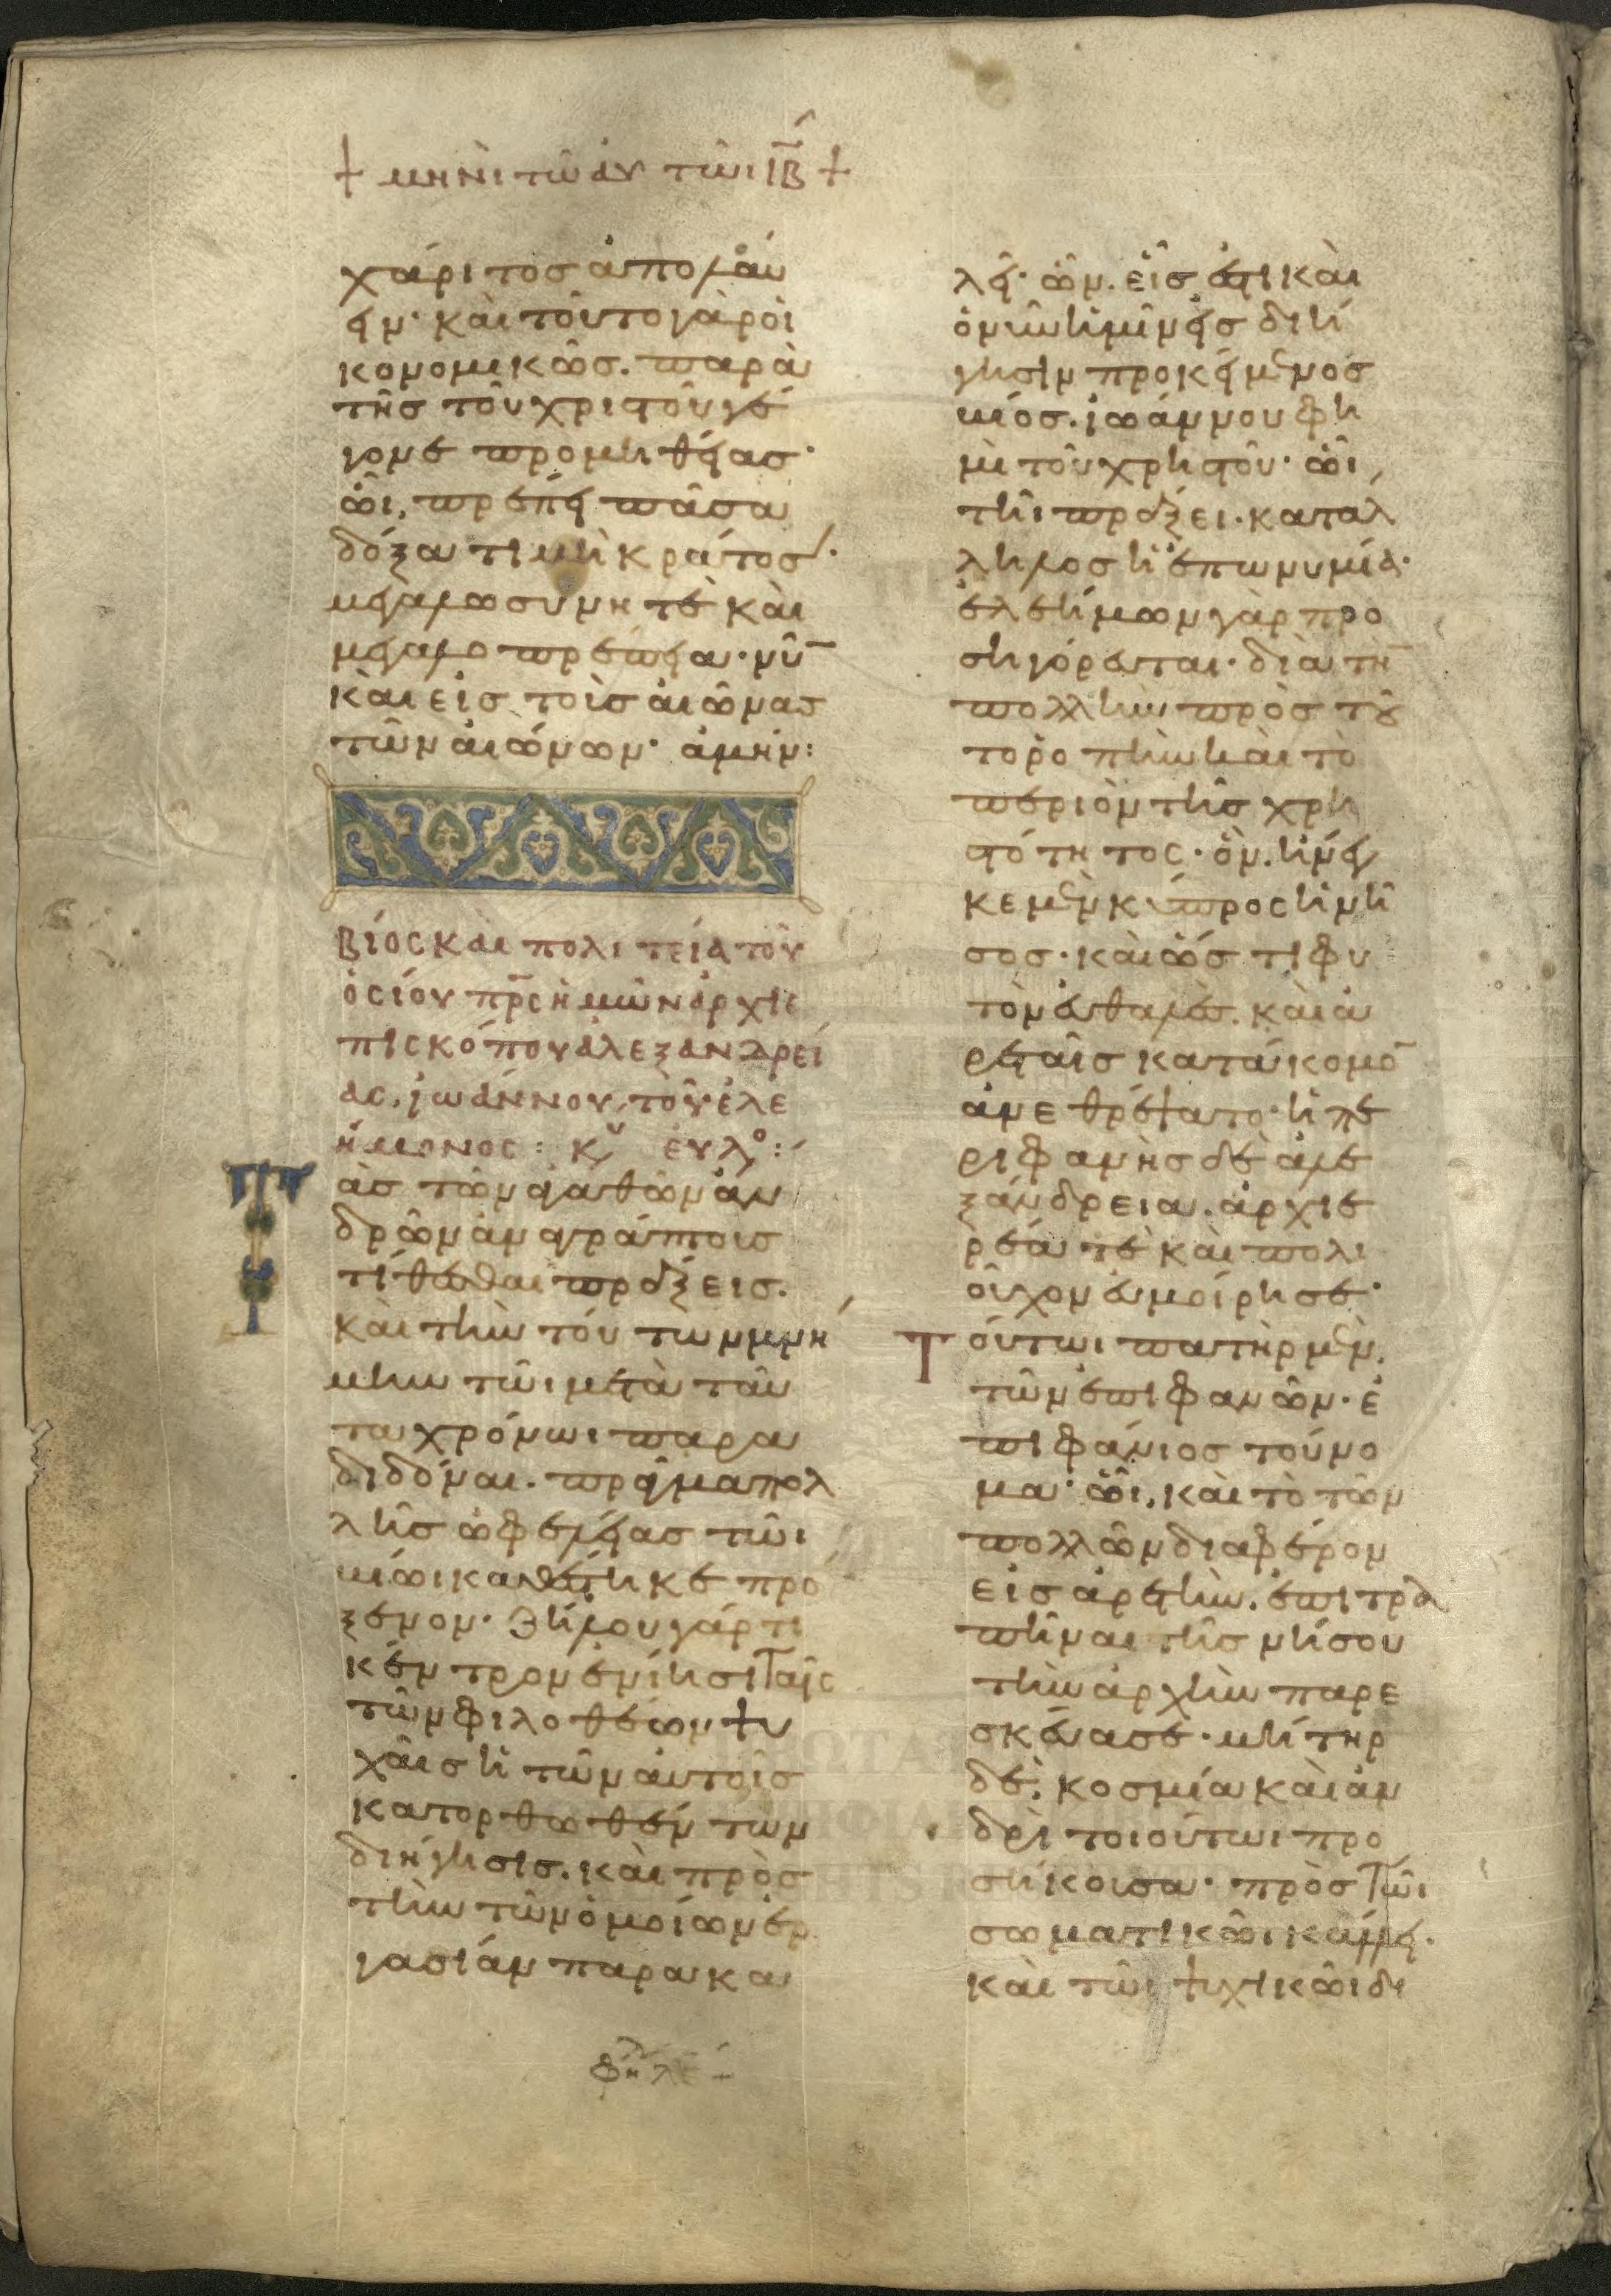 + μηνὶ τῶ αυ τῶι ιβ +
χάριτος ἀπολαύ
ειν· καὶ τοῦτο γὰρ οἰ
κονομικῶς. παρὰ
τῆς τοῦ χριστοῦ γέ
γονε προμηθείας·
ὧι, πρέπει πᾶσα
δόξα τιμὴ κράτος·
μεγαλωσύνη τὲ καὶ
μεγαλοπρέπεια· νῦ̅
καὶ εἰς τοὺς αἰῶνας
τῶν αἰώνων· ἀμήν:
βίος καὶ πολιτεία τοῦ
ὁσίου πρ̅ς ἡμῶν ἀρχιε
πισκόπου ἀλεξανδρεί
ας, ἰωάννου, τοῦ ἐλε
ήμονος: κυ ἐυλο:
Τὰς τῶν ἀγαθῶν ἀν
δρῶν ἀναγράπτους
τίθεσθαι πράξεις.
καὶ τὴν τούτων μνή
μην τῶι μετὰ ταῦ
τα χρόνωι παρα
διδόναι. πρᾶγμα πολ
λῆς ὠφελείας τῶι
βίωι καθέστηκε πρό
ξενον· ζήλου γάρ τι
κέντρον ἐνίησι ταῖς
τῶν φιλοθέων ψυ
χαῖς ἡ τῶν αὐτοῖς
κατορθωθέντων
διήγησις. καὶ πρὸς
τὴν τῶν ὁμοίων ἐρ
γασίαν παρακα
λεῖ· ὧν. εἷς ἐστι καὶ
ὁ νῦν ἡμῖν εἰς διή
γησιν προκείμενος
βίος. ἰωάννου φη
μὶ τοῦ χρηστοῦ· ὧι,
τῆι πράξει. κατάλ
ληλος ἡ ἐπωνυμία·
ἐλεήμων γὰρ προ
σηγόρευται· διὰ τὴ̅
πολλὴν πρὸς τοῦ
το ῥοπὴν καὶ τὸ
περιὸν τῆς χρη
στότητος· ὃν. ἤνεγ
κε μὲν κύπρος ἡ νῆ
σος· καὶ ὥς τι φυ
τὸν εὐθαλὲς. καὶ ἀ
ρεταῖς κατάκομο̅
ἀνεθρέψατο· ἡ πε
ριφανὴς δὲ ἀλε
ξάνδρεια. ἀρχιε
ρέα τὲ καὶ πολι
οῦχον εὐμοίρησε·
Τούτωι πατὴρ μὲν,
τῶν ἐπιφανῶν· ἐ
πιφάνιος τοὔνο
μα· ὧι, καὶ τὸ τῶν
πολλῶν διαφέρον
εἰς ἀρετὴν. ἐπιτρα
πῆναι τῆς νήσου
τὴν ἀρχὴν παρε
σκεύασε· μήτηρ
δὲ. κοσμία καὶ ἀν
δρὶ τοιούτωι προ
σήκουσα· πρὸς τῶι
σωματικῶι κάλλει.
καὶ τῶι ψυχικῶι δι